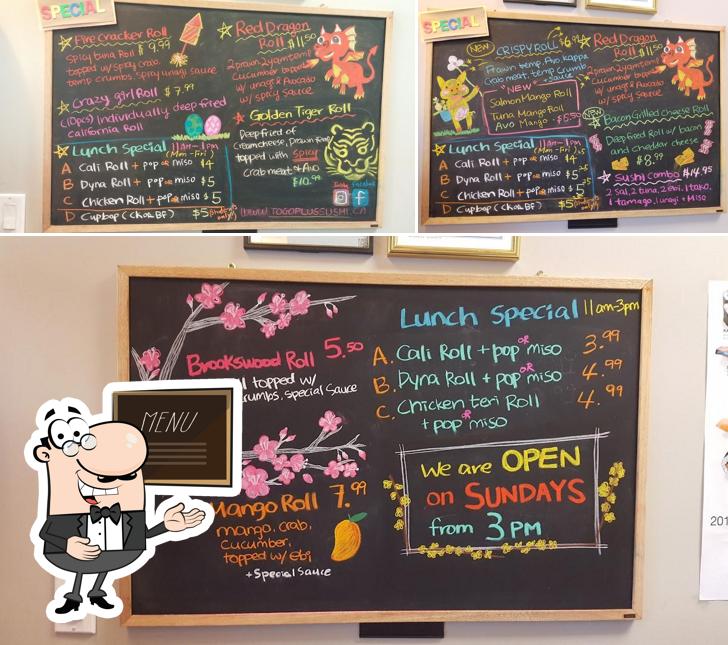 SPECIAL
Fire Cracker Roll
Spicy tuna Roll $9.99
topped w/ spicy crab,
temp crumbs. Spicy unagi sauce
Crazy girl Roll $7.99
(10pcs) Individually deep fried
California Roll
Lunch Special 11am-1pm
(Mon-Fri)
A Cali Roll + pop or miso $4
B Dyna Roll + pop or miso $5
C Chicken Roll + pop or miso $5
D Cupbop (Ch or BF) $5
Red Dragon
Roll $11.50
2 prawn 2 yam temp
cucumber
w/ unagi & Avocado
w/ spicy sauce
Golden Tiger Roll
Deep fried of
creamcheese, prawn
topped with spicy
crab meat & Avo
$10.99
TOGOPLUSSUSHI.CA
SPECIAL
NEW CRISPY ROLL $6.99
prawn temp, Avo, kappa
Crab meat, temp crumb
Sauce
"NEW"
Salmon Mango Roll
Tuna Mango Roll
Avo Mango $5.50
Lunch Special 11am-1pm
(Mon-Fri)
A Cali Roll + pop or miso $4
B Dyna Roll + pop or miso $5
C Chicken Roll + pop or miso $5
D Cupbop (Ch or BF) $5
Red Dragon
Roll $11.50
2 prawn 2 yam temp
cucumber
w/ unagi & Avocado
w/ spicy sauce
NEW
Bacon Grilled Cheese Roll
Deep fried Roll w/ bacon
and cheddar cheese
$8.99
Sushi Combo $14.95
2 Sal, 2 tuna, 2 ebi, 1 tako,
1 tamago, 1 unagi + Miso
Brookswood Roll 5.50
topped w/
crumbs, special Sauce
Mango Roll 7.99
mango, crab,
cucumber,
topped w/ ebi
+ Special Sauce
Lunch Special 11am-3pm
A. Cali Roll + pop or miso 3.99
B. Dyna Roll + pop or miso 4.99
C. Chicken teri Roll 4.99
+ pop or miso
We are OPEN
on SUNDAYS
from 3 PM
MENU
201